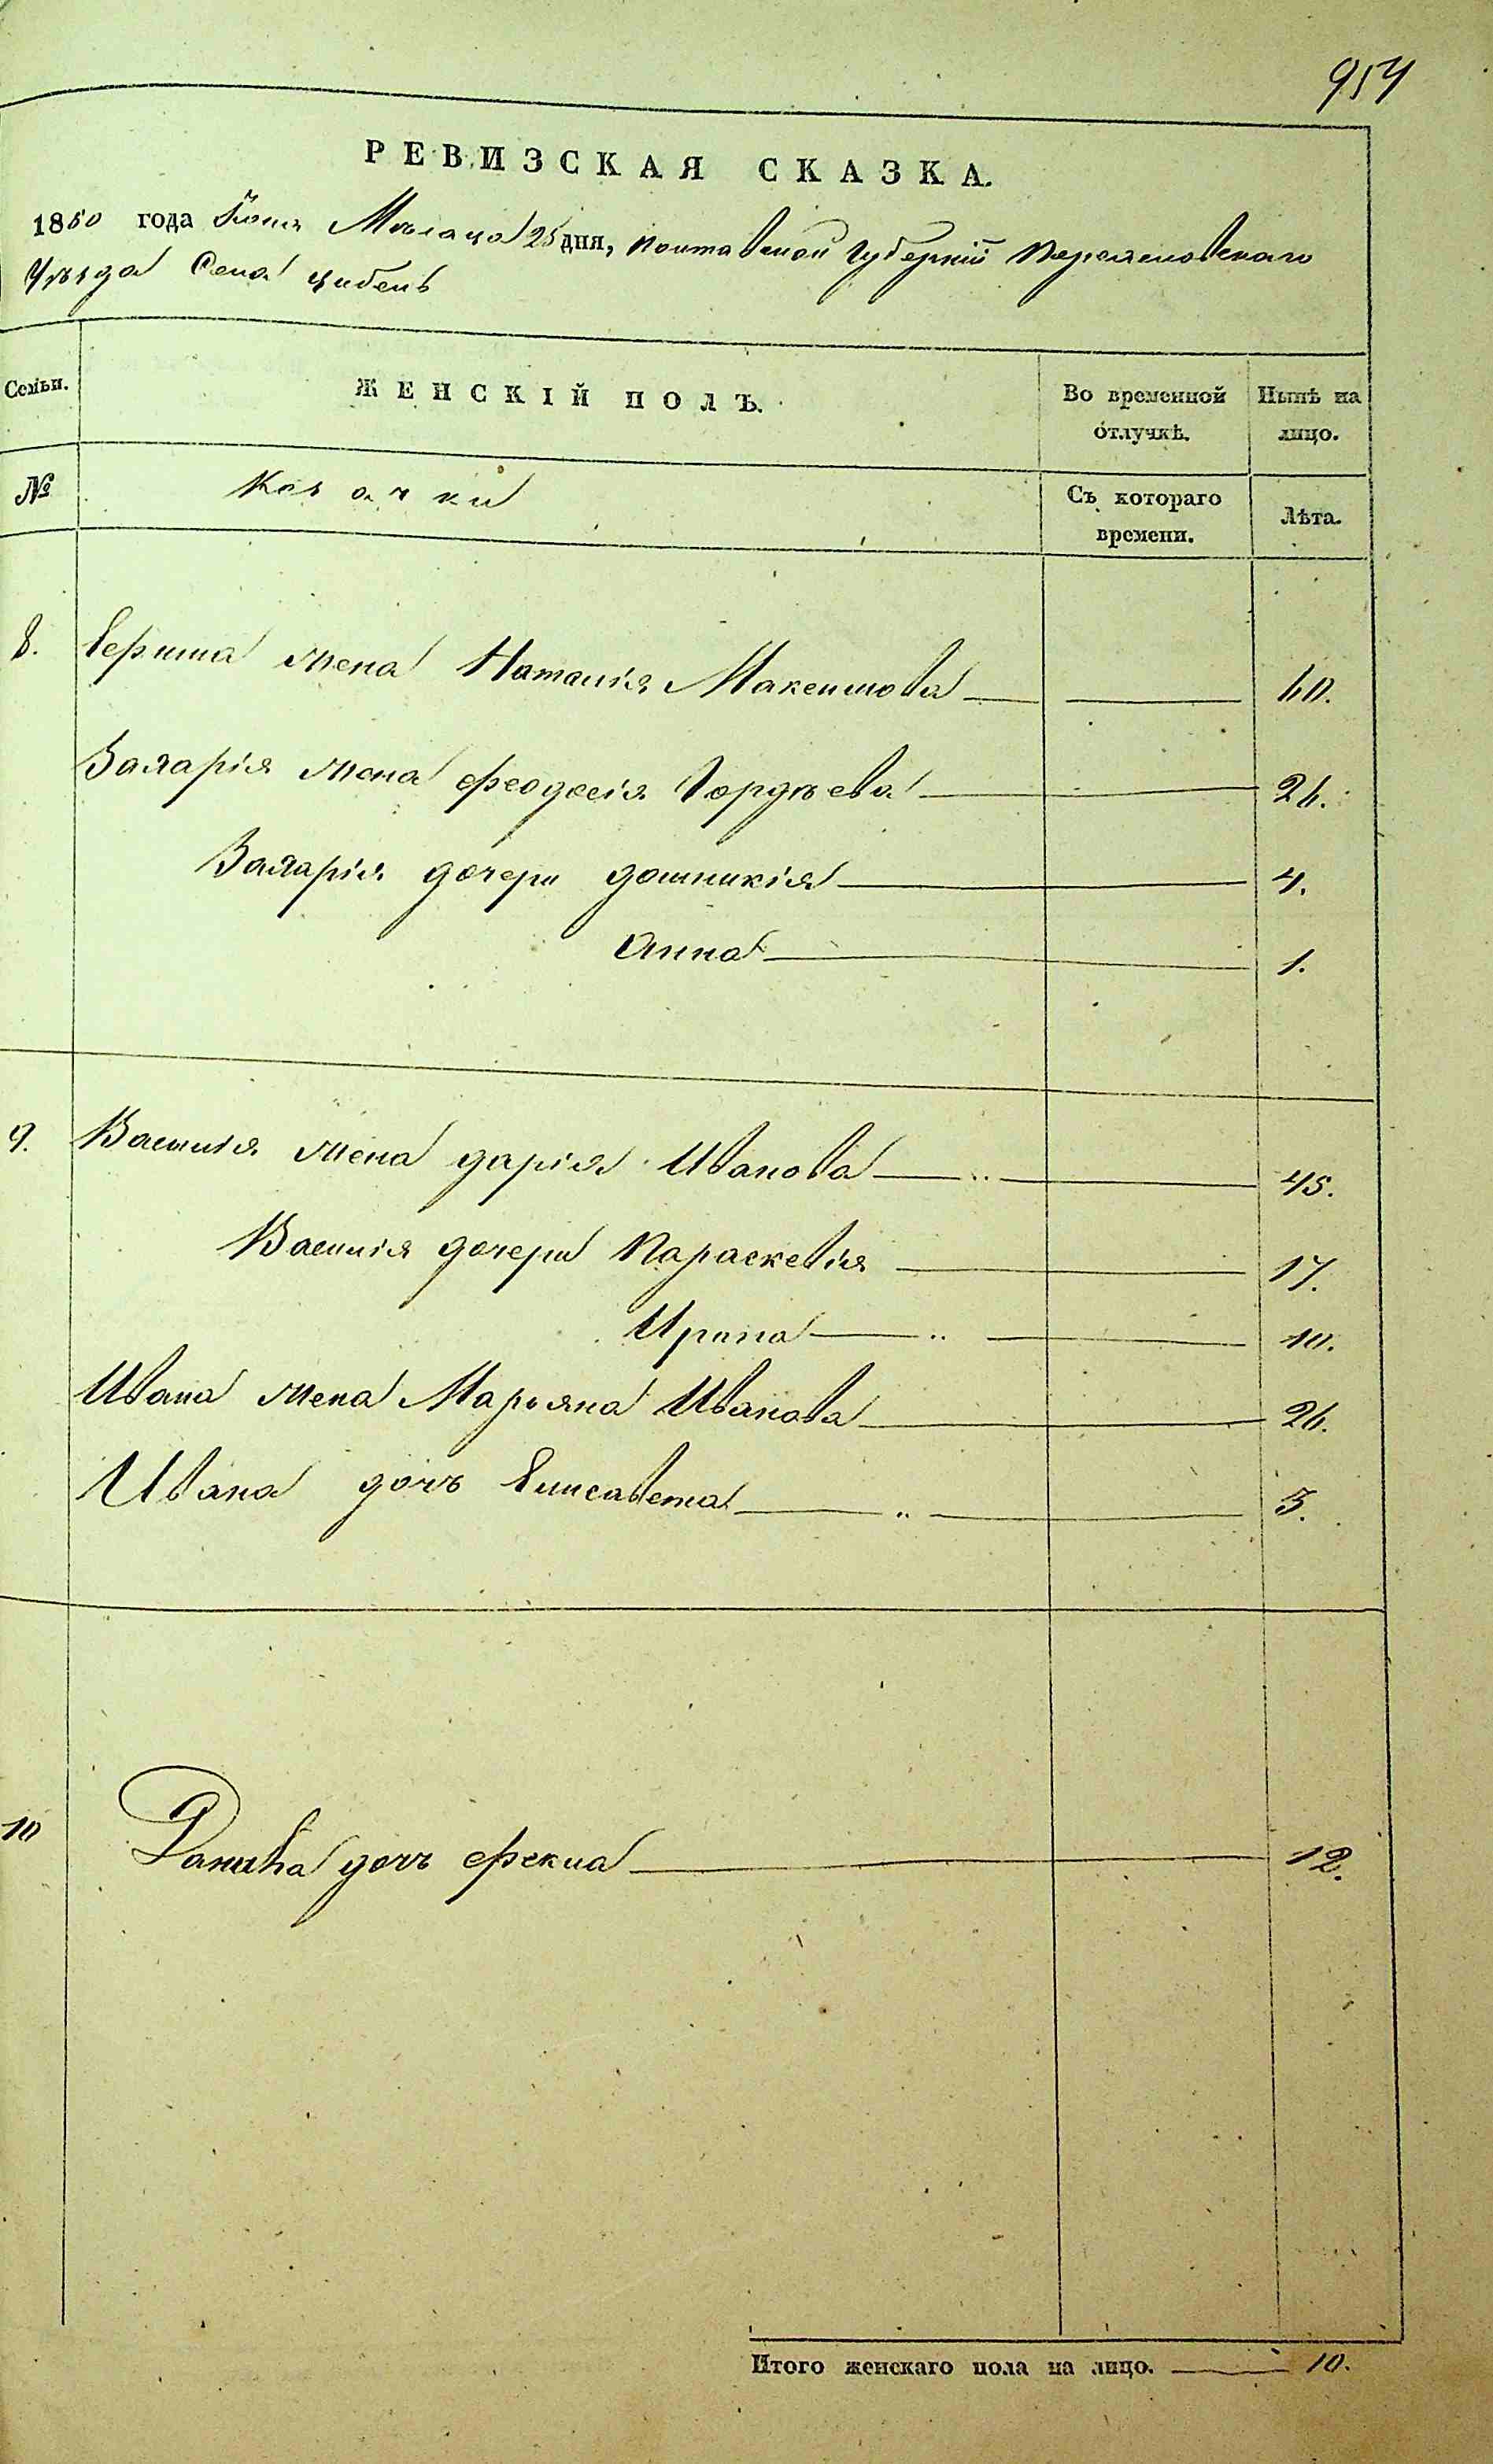 954
РЕВИЗСКАЯ СКАЗКА.
1850 года Іюня Мѣсяца 25 дня, Полтавской Губерніи Переяславскаго
Уѣзда Села Цибель
Семьи. ЖЕНСКІЙ ПОЛЪ. Во временной отлучкѣ. Нынѣ на лицо.
№ Козачки Съ котораго времени. Лѣта.
8. жена Наталія Максимова 60.
Захарія жена Феодосія Гордѣева 26.
Захарія дочери Домникія 4.
Анна 1.
9. Василія жена Дарія Иванова 45.
Василія дочери Параскевія 17.
Ирина 10.
Ивана жена Марьяна Иванова 26.
Ивана дочь Елисавета 3.
10 Данила дочь Фекла 12.
Итого женскаго пола на лицо. 10.